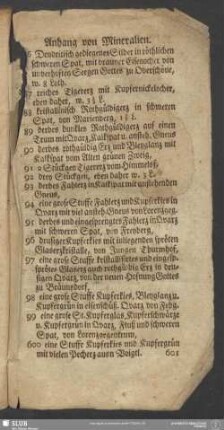 Anhang von Mineralien.
86 Dendritisch gediegenes Silber in röthlichen
schweren Spat, mit brauner Eisenocher von
unverhofften Seegen Gottes zu Oberschöne,
w. 8 Loth.
87 reiches Tigererz mit Kupfernickelocher,
eben daher, w. 3 ½ L.
88 kristallinisch Rothgüldigerz in schweren
Spat, von Marienberg, 1 ½ L.
89 derbes dunkles Rothgüldigerz auf einen
Trum mit Quarz, Kalkspat u. ansteh. Gneus
90 derbes rothgüldig Erz und Bleyglanz mit
Kalkspat vom Alten grünen Zweig,
91 2 Stückgen Tigererz vom Himmelsfst.
92 drey Stückgen, eben daher w. 3 L.
93 derbes Fahlerz in Kalkspat mit anstehenden
Gneus,
94 eine große Stuffe Fahlerz und Kupferkies in
Quarz mit viel ansteh. Gneus von Lorenzgeg.
95 derbes und eingesprengtes Fahlerz in Quarz
mit schweren Spat, von Freyberg,
96 drusiger Kupferkies mit inliegenden spröden
Glaserzkristalle, von Jungen Thurmhof,
97 eine große Stuffe kristallisirtes und einge-
sprengtes Glaserz auch rothgüldig Erz in dru-
sigen Quarz, von der neuen Hofnung Gottes
zu Bräunsdorf,
98 eine große Stuffe Kupferkies, Bleyglanz u.
Kupfergrün in eisenschüß. Quarz von Feßg.
99 eine große St. Kupferglas, Kupferschwärze
u. Kupfergrün in Quarz, Fluß und schweren
Spat, von Lorenzgegentrum,
600 eine Stuffe Kupferkies und Kupfergrün
mit vielen Pecherz auen Voigtl.
601